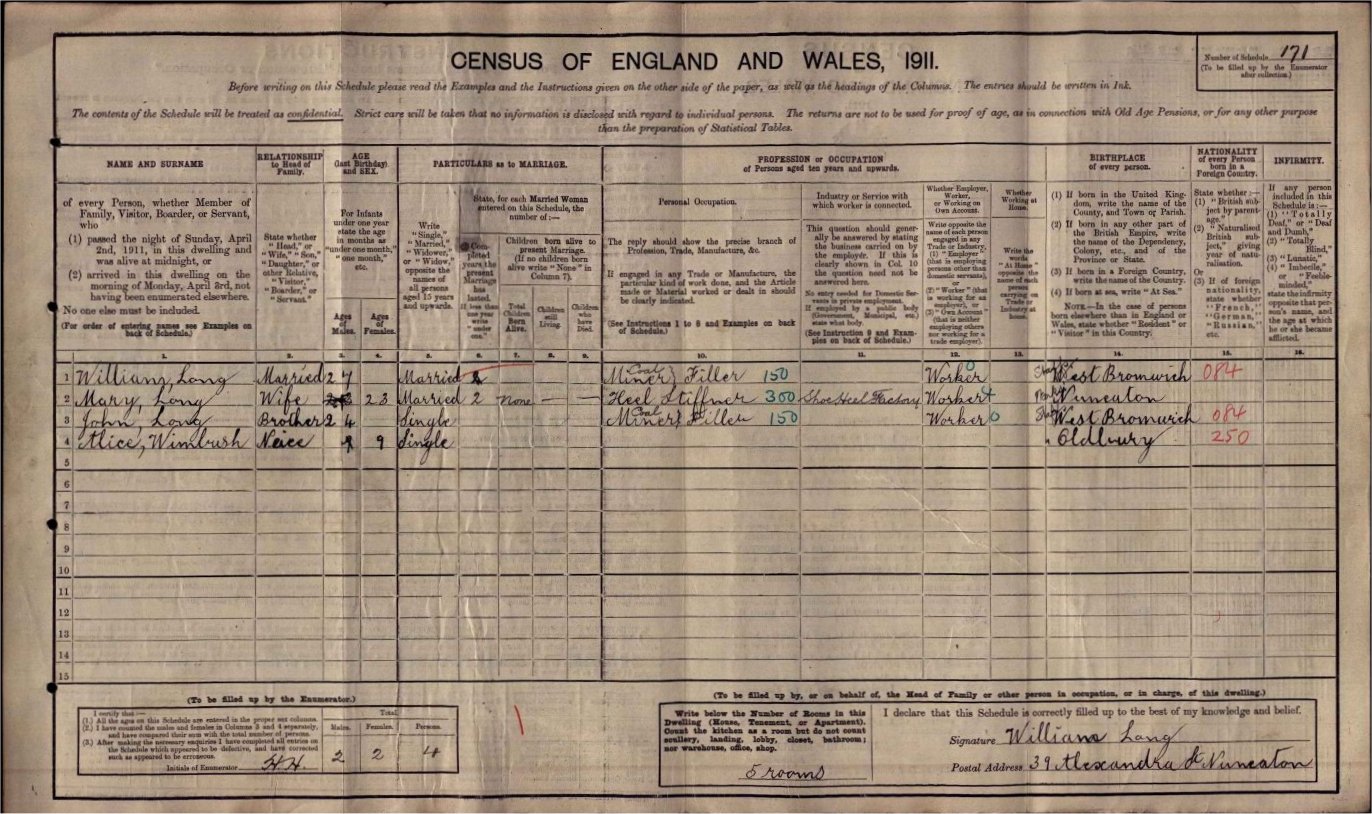 CENSUS OF ENGLAND AND WALES, 1911.
Number of Schedule 171
(To be filled up by the Enumerator
after collection.)
Before writing on this Schedule please read the Examples and the Instructions given on the other side of the paper, as well as the headings of the Columns. The entries should be written in Ink.
The contents of the Schedule will be treated as confidential. Strict care will be taken that no information is disclosed with regard to individual persons. The returns are not to be used for proof of age, as in connection with Old Age Pensions, or for any other purpose
than the preparation of Statistical Tables.
NAME AND SURNAME
of every Person, whether Member of
Family, Visitor, Boarder, or Servant,
who
(1) passed the night of Sunday, April
2nd, 1911, in this dwelling and
was alive at midnight, or
(2) arrived in this dwelling on the
morning of Monday, April 3rd, not
having been enumerated elsewhere.
No one else must be included.
(For order of entering names see Examples on
back of Schedule.)
RELATIONSHIP
to Head of
Family.
State whether
"Head," or
"Wife," "Son,"
"Daughter," or
other Relative,
"Visitor,"
"Boarder," or
"Servant."
AGE
(last Birthday)
and SEX.
For Infants
under one year
state the age
in months as
"under one month,"
"one month,"
etc.
Ages
of
Males.
Ages
of
Females.
PARTICULARS as to MARRIAGE.
Write
"Single,"
"Married,"
"Widower,"
or "Widow,"
opposite the
names of
all persons
aged 15 years
and upwards.
State, for each Married Woman
entered on this Schedule, the
number of:—
Completed
years the
present
Marriage
has
lasted.
If less than
one year
write
"under
one."
Children born alive to
present Marriage.
(If no children born
alive write "None" in
Column 7).
Total
Children
Born
Alive.
Children
still
Living.
Children
who
have
Died.
PROFESSION or OCCUPATION
of Persons aged ten years and upwards.
Personal Occupation.
The reply should show the precise branch of
Profession, Trade, Manufacture, &c.
If engaged in any Trade or Manufacture, the
particular kind of work done, and the Article
made or Material worked or dealt in should
be clearly indicated.
(See Instructions 1 to 8 and Examples on back
of Schedule.)
Industry or Service with
which worker is connected.
This question should generally
be answered by stating
the business carried on by
the employer. If this is
clearly shown in Col. 10
the question need not be
answered here.
No entry needed for Domestic Servants
in private employment.
If employed by a public body
(Government, Municipal, etc.)
state what body.
(See Instruction 9 and Examples
on back of Schedule.)
Whether Employer,
Worker,
or Working on
Own Account.
Write opposite the
name of each person
engaged in any
Trade or Industry,
(1) "Employer"
(that is employing
persons other than
domestic servants),
or
(2) "Worker" (that
is working for an
employer), or
(3) "Own Account"
(that is neither
employing others
nor working for a
trade employer).
Whether
Working at
Home.
Write the
words
"At Home"
opposite the
name of each
person
carrying on
Trade or
Industry at
home.
BIRTHPLACE
of every person.
(1) If born in the United Kingdom,
write the name of the
County, and Town or Parish.
(2) If born in any other part of
the British Empire, write
the name of the Dependency,
Colony, etc., and of the
Province or State.
(3) If born in a Foreign Country,
write the name of the Country.
(4) If born at sea, write "At Sea."
NOTE.—In the case of persons
born elsewhere than in England or
Wales, state whether "Resident" or
"Visitor" in this Country.
NATIONALITY
of every Person
born in a
Foreign Country.
State whether:—
(1) "British subject
by parentage,"
(2) "Naturalised
British subject,"
giving
year of naturalisation.
Or
(3) If of foreign
nationality,
state whether
"French,"
"German,"
"Russian,"
etc.
INFIRMITY.
If any person
included in this
Schedule is:—
(1) "Totally
Deaf," or "Deaf
and Dumb,"
(2) "Totally
Blind,"
(3) "Lunatic,"
(4) "Imbecile,"
or "Feeble-minded,"
state the infirmity
opposite that person's
name, and
the age at which
he or she became
afflicted.
1. 2. 3. 4. 5. 6. 7. 8. 9. 10. 11. 12. 13. 14. 15. 16.
1 William, Long Married 27 Married Coal Miner Filler 150 Worker 0 West Bromwich 084
2 Mary, Long Wife 23 Married 2 None — — Heel Stiffner 300 Shoe Heel Factory Worker Nuneaton
3 John, Long Brother 24 Single Coal Miner Filler 150 Worker 0 West Bromwich 084
4 Alice, Wimbush Neice 9 Single Oldbury 250
5
6
7
8
9
10
11
12
13
14
15
(To be filled up by the Enumerator.)
I certify that:—
(1.) All the ages on this Schedule are entered in the proper sex columns.
(2.) I have counted the males and females in Columns 3 and 4 separately,
and have compared their sum with the total number of persons.
(3.) After making the necessary enquiries I have completed all entries on
the Schedule which appeared to be defective, and have corrected
such as appeared to be erroneous.
Initials of Enumerator
Total.
Males. Females. Persons.
2 2 4
(To be filled up by, or on behalf of, the Head of Family or other person in occupation, or in charge, of this dwelling.)
Write below the Number of Rooms in this
Dwelling (House, Tenement, or Apartment).
Count the kitchen as a room but do not count
scullery, landing, lobby, closet, bathroom;
nor warehouse, office, shop.
5 rooms
I declare that this Schedule is correctly filled up to the best of my knowledge and belief.
Signature William Long
Postal Address 39 Alexandra St Nuneaton